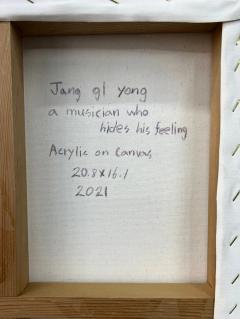 Jang gi yong
a musician who
hides his feeling
Acrylic on Canvas
20.8x16.1
2021